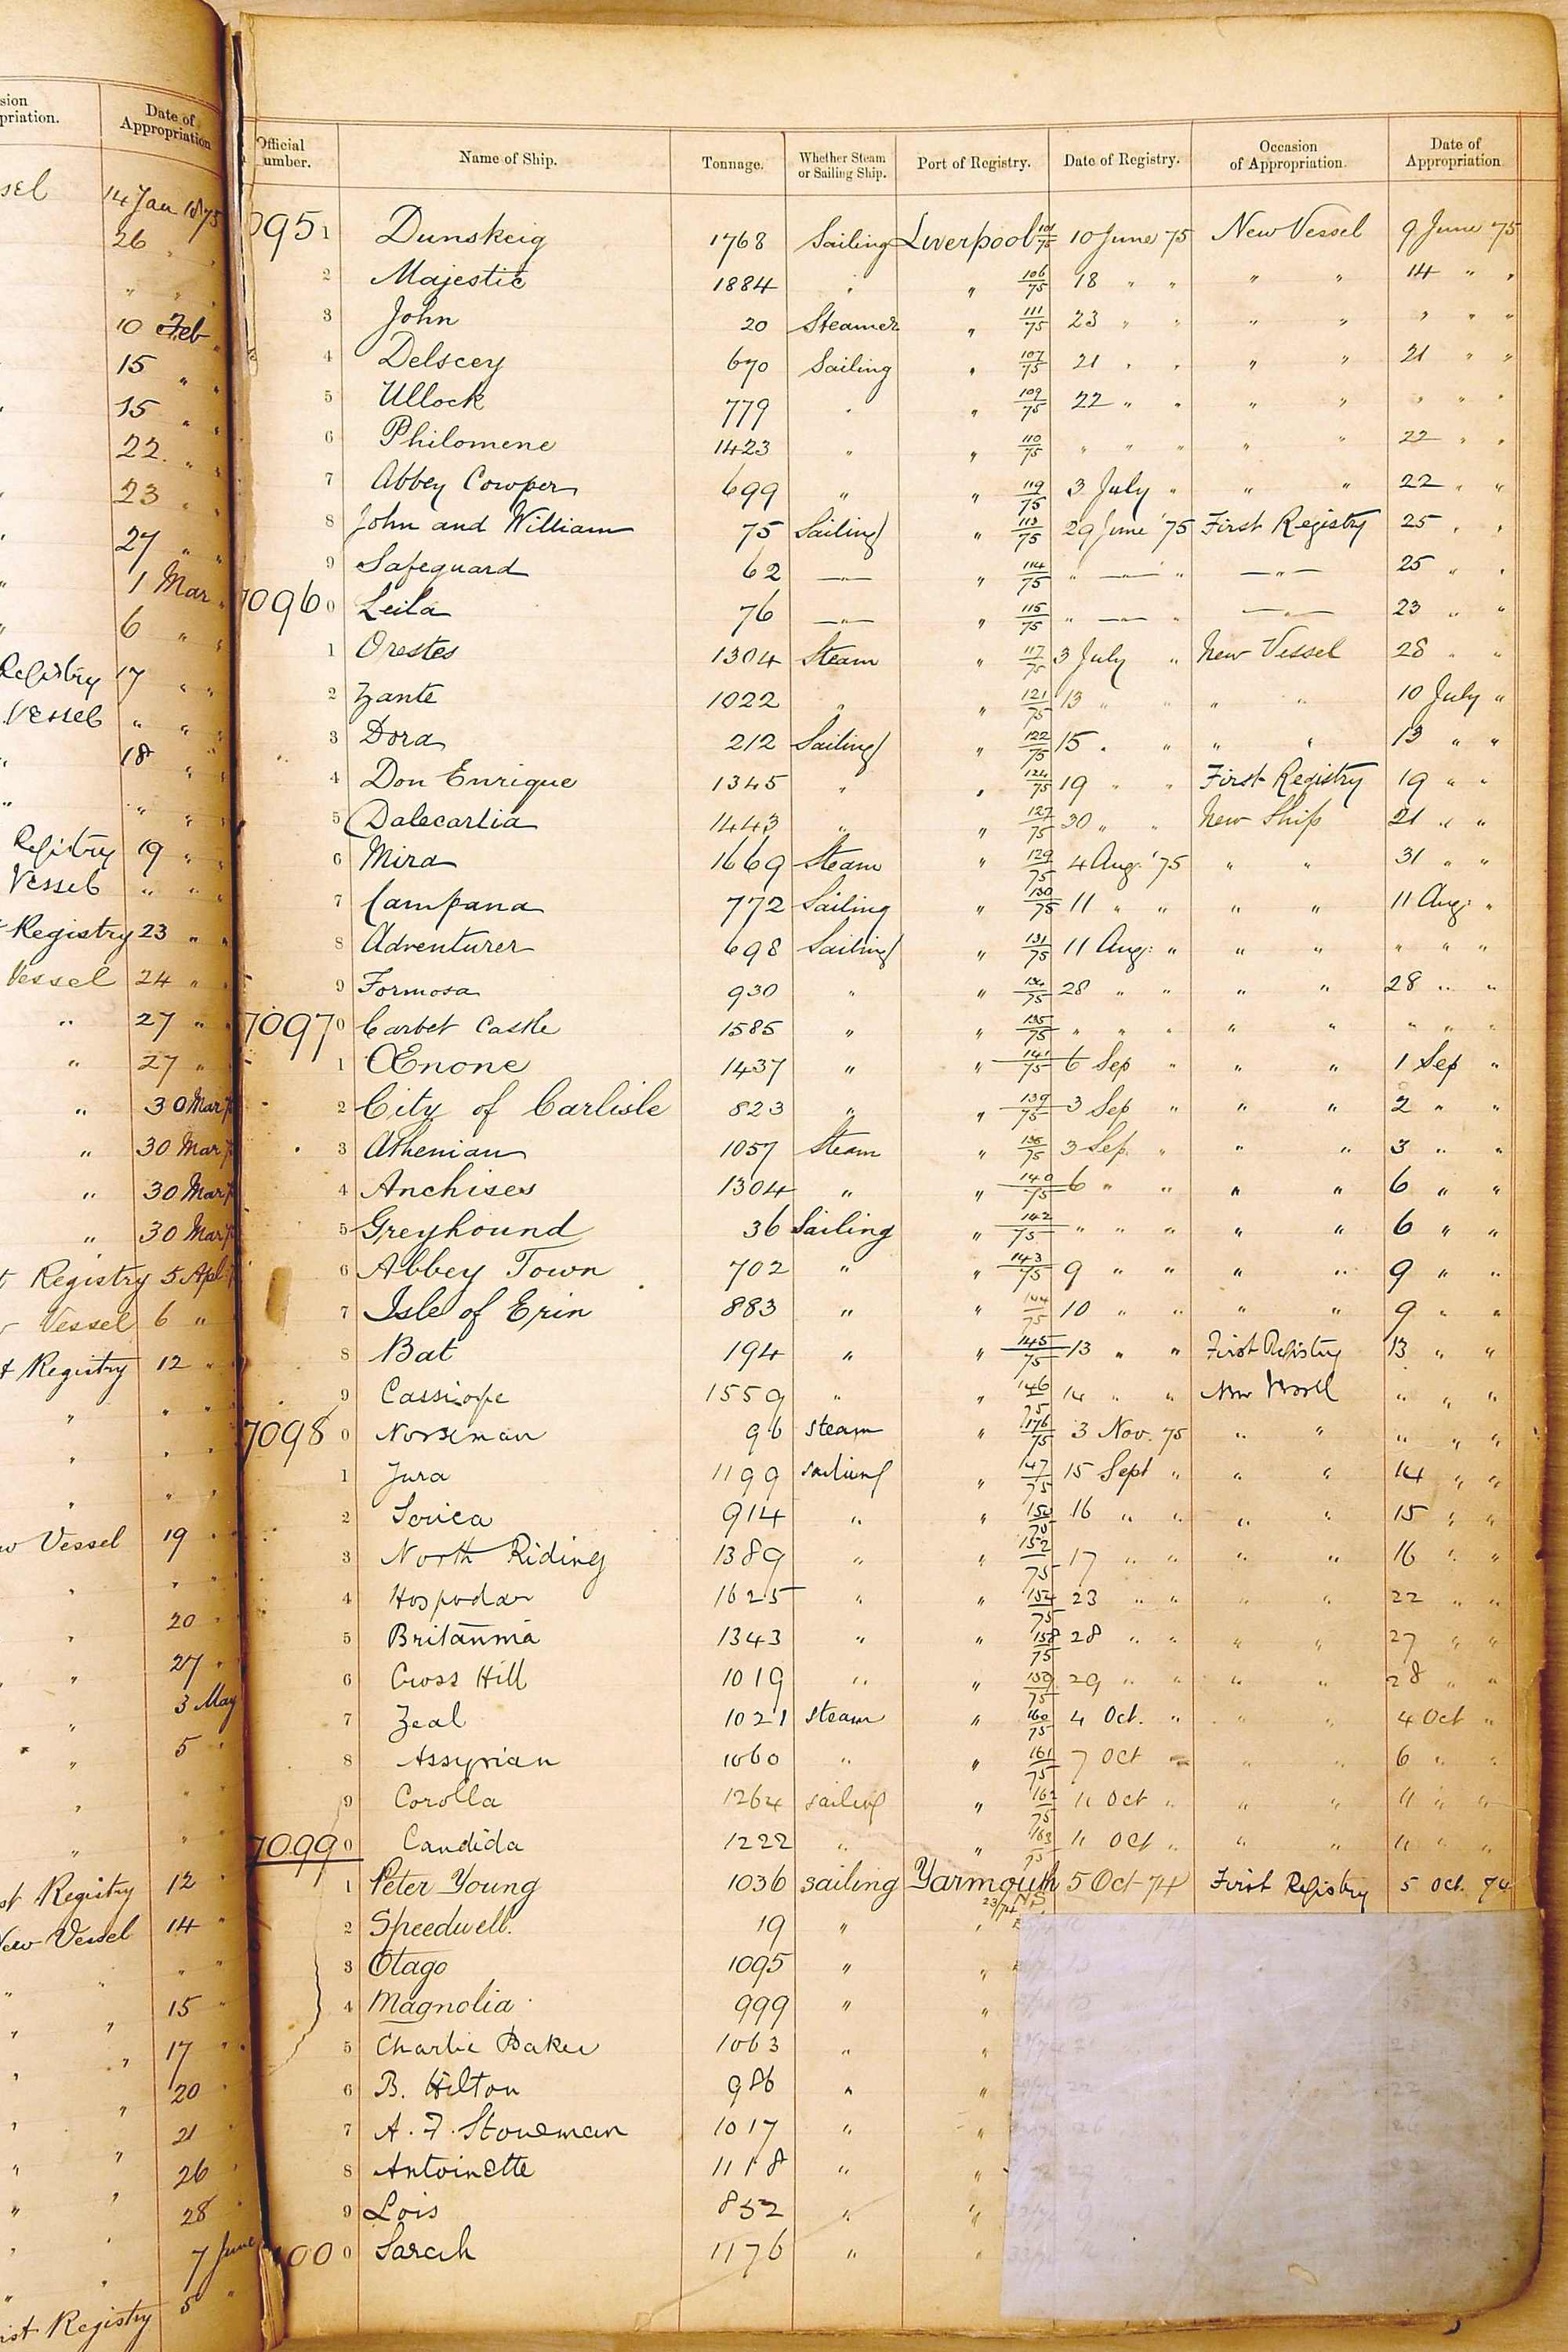 sion
priation.
Date of
Appropriation
sel
14 Jan 1875
26 " "
" " "
10 Feb "
15 " "
" 15 " "
22. " "
" 23 " "
" 27 " "
" 1 Mar "
" 6 " "
Registry 17 " "
Vessel " " "
" 18 " "
" " " "
Registry 19 " "
Vessel " " "
Registry 23 " "
Vessel 24 " "
" 27 " "
" 27 "
" 30 Mar
" 30 Mar
" 30 Mar
" 30 Mar
t Registry 5 Apl
Vessel 6 "
t Registry 12 "
" " "
" " "
" " "
w Vessel 19 "
" " "
" 20 "
" 27 "
" 3 May
" 5 "
" " "
" " "
st Registry 12 "
New Vessel 14 "
" " " "
" " 15 "
" " 17 "
" " 20 "
" " 21 "
" " 26 "
" " 28 "
" " 7 June
" 5 "
ist Registry
Official
umber.
Name of Ship.
Tonnage.
Whether Steam
or Sailing Ship.
Port of Registry.
Date of Registry.
Occasion
of Appropriation.
Date of
Appropriation
095 1 Dunskeig 1768 Sailing Liverpool 101/75 10 June 75 New Vessel 9 June 75
2 Majestic 1884 " " 106/75 18 " " " " 14 " "
3 John 20 Steamer " 111/75 23 " " " " " " "
4 Delscey 670 Sailing " 107/75 21 " " " " 21 " "
5 Ullock 779 " " 109/75 22 " " " " " " "
6 Philomene 1423 " " 110/75 " " " " " 22 " "
7 Abbey Cowper 699 " " 119/75 3 July " " " 22 " "
8 John and William 75 Sailing " 113/75 29 June '75 First Registry 25 " "
9 Safeguard 62 —"— " 114/75 " —"— " —"— 25 " "
7096 0 Leila 76 —"— " 115/75 " —"— " —"— 23 " "
1 Orestes 1304 Steam " 117/75 3 July " New Vessel 28 " "
2 Zante 1022 " " 121/75 13 " " " " 10 July "
3 Dora 212 Sailing " 122/75 15 " " " " 13 " "
4 Don Enrique 1345 " " 124/75 19 " " First Registry 19 " "
5 Dalecarlia 1443 " " 127/75 30 " " New Ship 21 " "
6 Mira 1669 Steam " 129/75 4 Aug. '75 " " 31 " "
7 Campana 772 Sailing " 130/75 11 " " " " 11 Aug. "
8 Adventurer 698 Sailing " 131/75 11 Aug: " " " " " "
9 Formosa 930 " " 134/75 28 " " " " 28 " "
7097 0 Corbet Castle 1585 " " 135/75 " " " " " " " "
1 Œnone 1437 " " 141/75 6 Sep " " " 1 Sep "
2 City of Carlisle 823 " " 139/75 3 Sep " " " 2 " "
3 Athenian 1057 Steam " 75 3 Sep. " " " 3 " "
4 Anchises 1304 " " 140/75 6 " " " " 6 " "
5 Greyhound 36 Sailing " 142/75 " " " " " 6 " "
6 Abbey Town 702 " " 143/75 9 " " " " 9 " "
7 Isle of Erin 883 " " 144/75 10 " " " " 9 " "
8 Bat 194 " " 145/75 13 " " First Registry 13 " "
9 Cassiope 1559 " " 146/75 14 " " New Vessel " " "
7098 0 Norseman 96 steam " 176/75 3 Nov. 75 " " " " "
1 Jura 1199 sailing " 147/75 15 Sept " " " 14 " "
2 Sorica 914 " " 150/75 16 " " " " 15 " "
3 North Riding 1389 " " 152/75 17 " " " " 16 " "
4 Hospodar 1625 " " 154/75 23 " " " " 22 " "
5 Britannia 1343 " " 158/75 28 " " " " 27 " "
6 Cross Hill 1019 " " 159/75 29 " " " " 28 " "
7 Zeal 1021 steam " 160/75 4 Oct. " " " 4 Oct "
8 Assyrian 1060 " " 161/75 7 Oct " " " 6 " "
9 Corolla 1264 sailing " 162/75 11 Oct " " " 11 " "
7099 0 Candida 1222 " " 163/75 11 Oct " " " 11 " "
1 Peter Young 1036 sailing Yarmouth 5 Oct 74 First Registry 5 Oct. 74
23/74 NS
2 Speedwell. 19 " "
3 Otago 1095 " "
4 Magnolia 999 " "
5 Charlie Baker 1063 " "
6 B. Hilton 986 " "
7 A. F. Stoneman 1017 " "
8 Antoinette 1118 " "
9 Lois 852 " "
100 0 Sarah 1176 " "